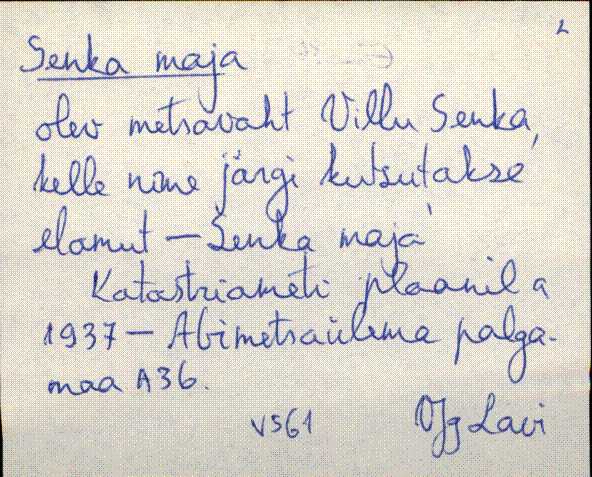 2
Senka maja
olev metsavaht Villu Senka,
kelle nime järgi kutsutakse
elamut – Senka maja
Katastriameti plaanil a
1937 – Abimetsaülema palga-
maa A36.
VS61 Lavi